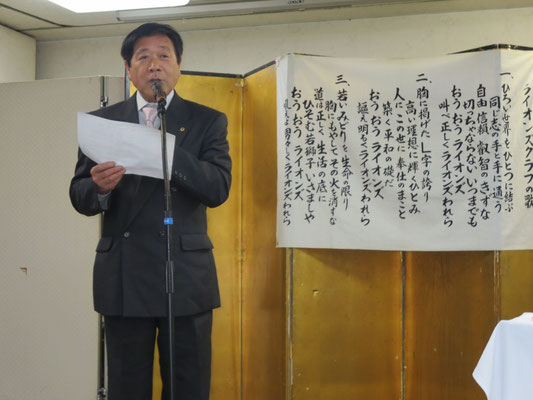 ライオンズクラブの歌
一、ひろい世界をひとつに結ぶ
同じ心の手と手に通う
自由 信頼 叡智のきずな
切っちゃならないいつまでも
おうおう ライオンズ
叫べ正しくライオンズわれら
二、胸に掲げたL字の誇り
高い理想に輝くひとみ
人にこの世に奉仕のまこと
築く平和の礎だ
おうおう ライオンズ
謳え明るくライオンズわれら
三、若いみどりを生命の限り
胸にもやしてその火を消すな
道は正しく生活の底に
ひそむ若獅子いさましや
おうおう ライオンズ
ライオンズわれら